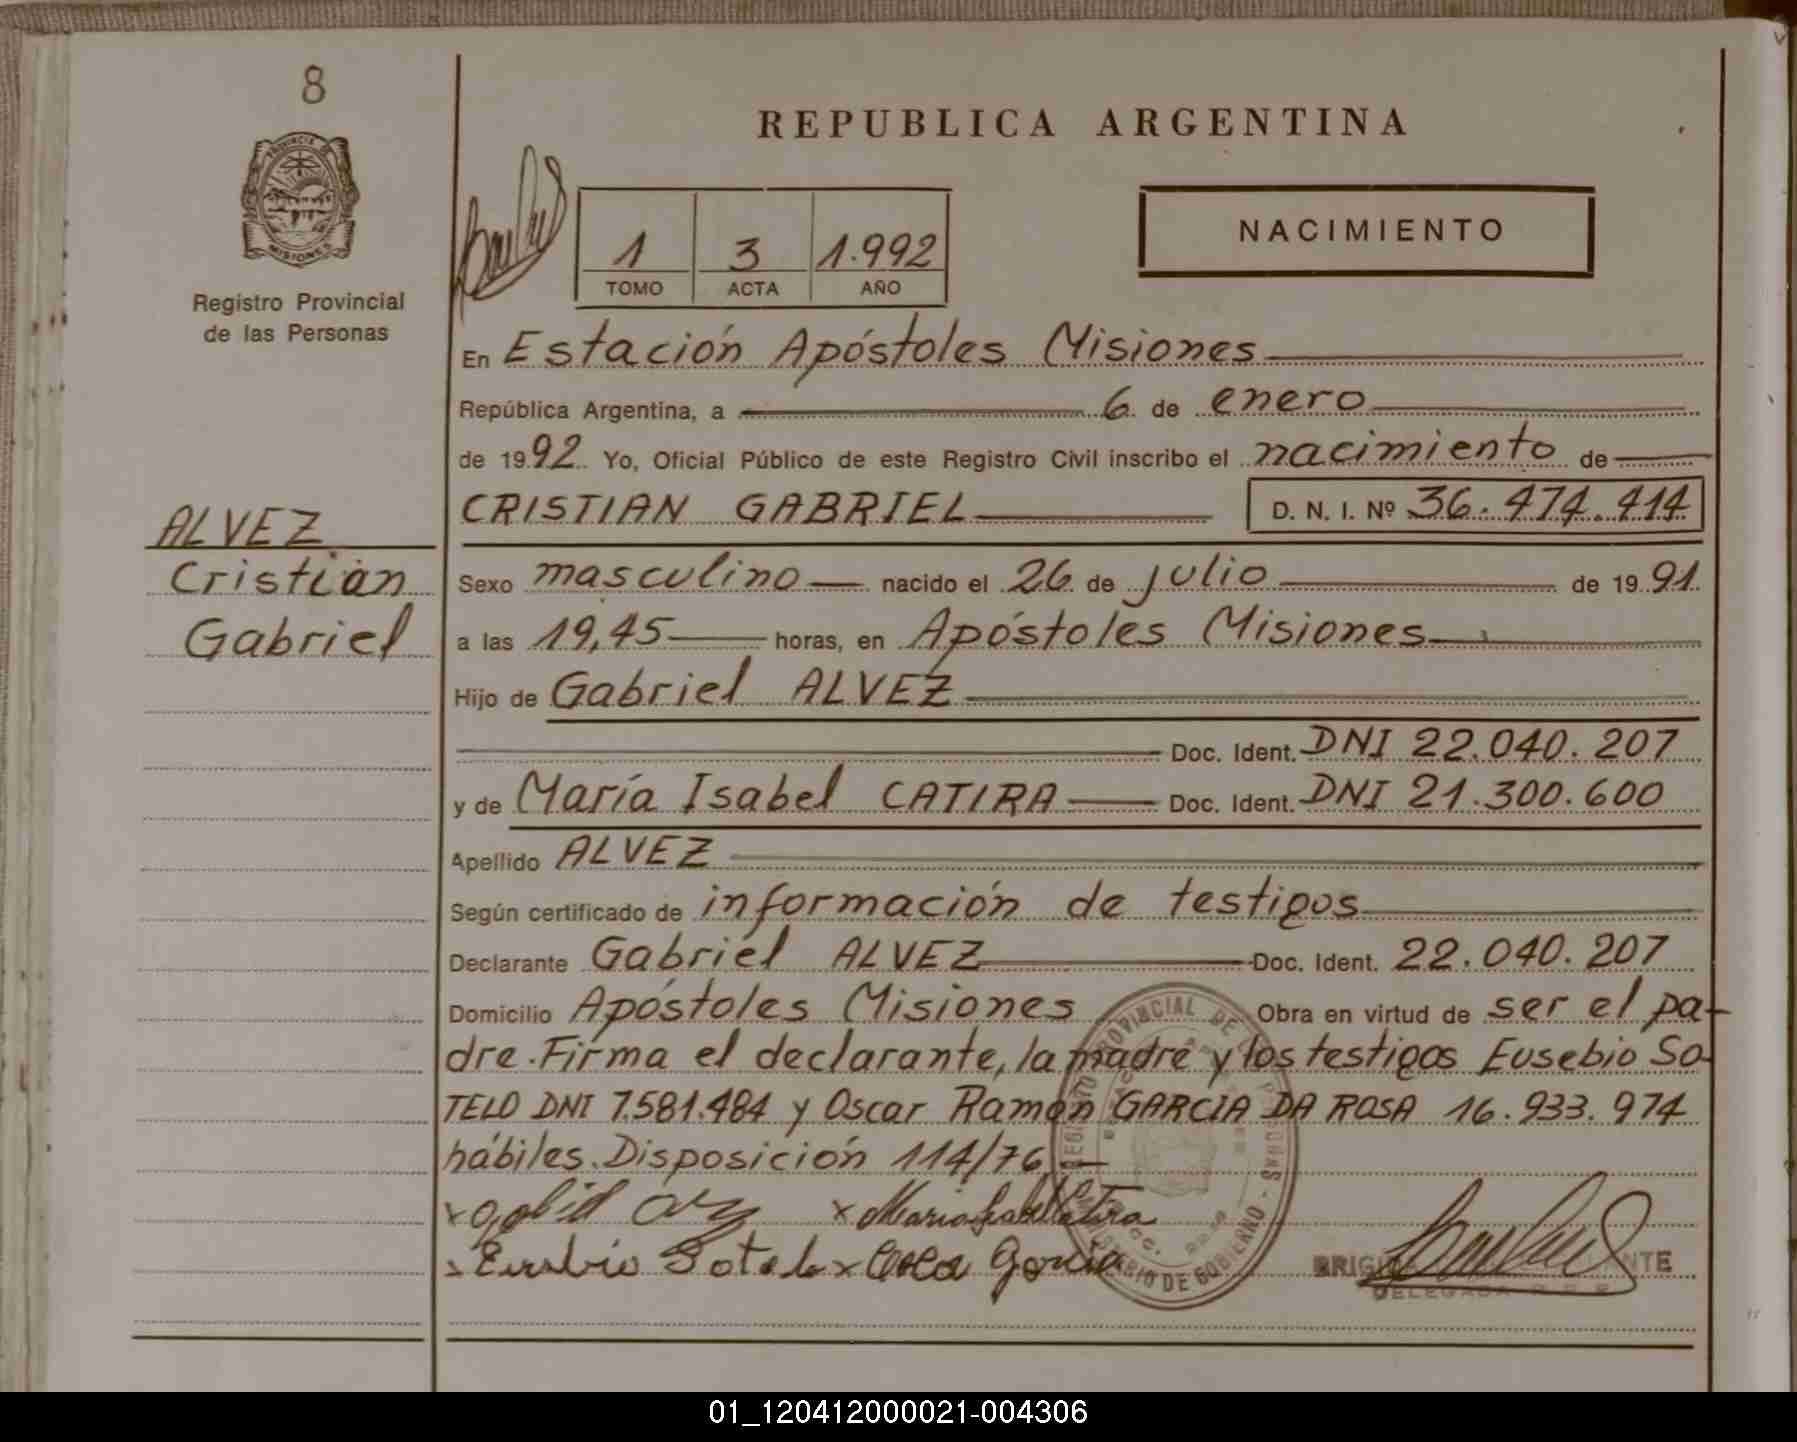 8
REPUBLICA ARGENTINA
PROVINCIA
MISIONES
Registro Provincial
de las Personas
1 3 1.992
TOMO ACTA AÑO
NACIMIENTO
En Estación Apóstoles Misiones
República Argentina, a 6 de enero
de 1992 Yo, Oficial Público de este Registro Civil inscribo el nacimiento de
CRISTIAN GABRIEL D. N. I. Nº 36.474.414
ALVEZ
Cristian
Gabriel
Sexo masculino nacido el 26 de julio de 1991.
a las 19,45 horas, en Apóstoles Misiones
Hijo de Gabriel ALVEZ
Doc. Ident. DNI 22.040.207
y de María Isabel CATIRA Doc. Ident. DNI 21.300.600
Apellido ALVEZ
Según certificado de información de testigos
Declarante Gabriel ALVEZ Doc. Ident. 22.040.207
Domicilio Apóstoles Misiones Obra en virtud de ser el pa-
dre. Firma el declarante, la madre y los testigos Eusebio SO-
TELO DNI 7.581.484 y Oscar Ramón GARCIA DA ROSA 16.933.974
hábiles. Disposición 114/76.
x x Maria Isabel Catira
x Eusebio Sotelo x Garcia
DELEGADA
01_120412000021-004306